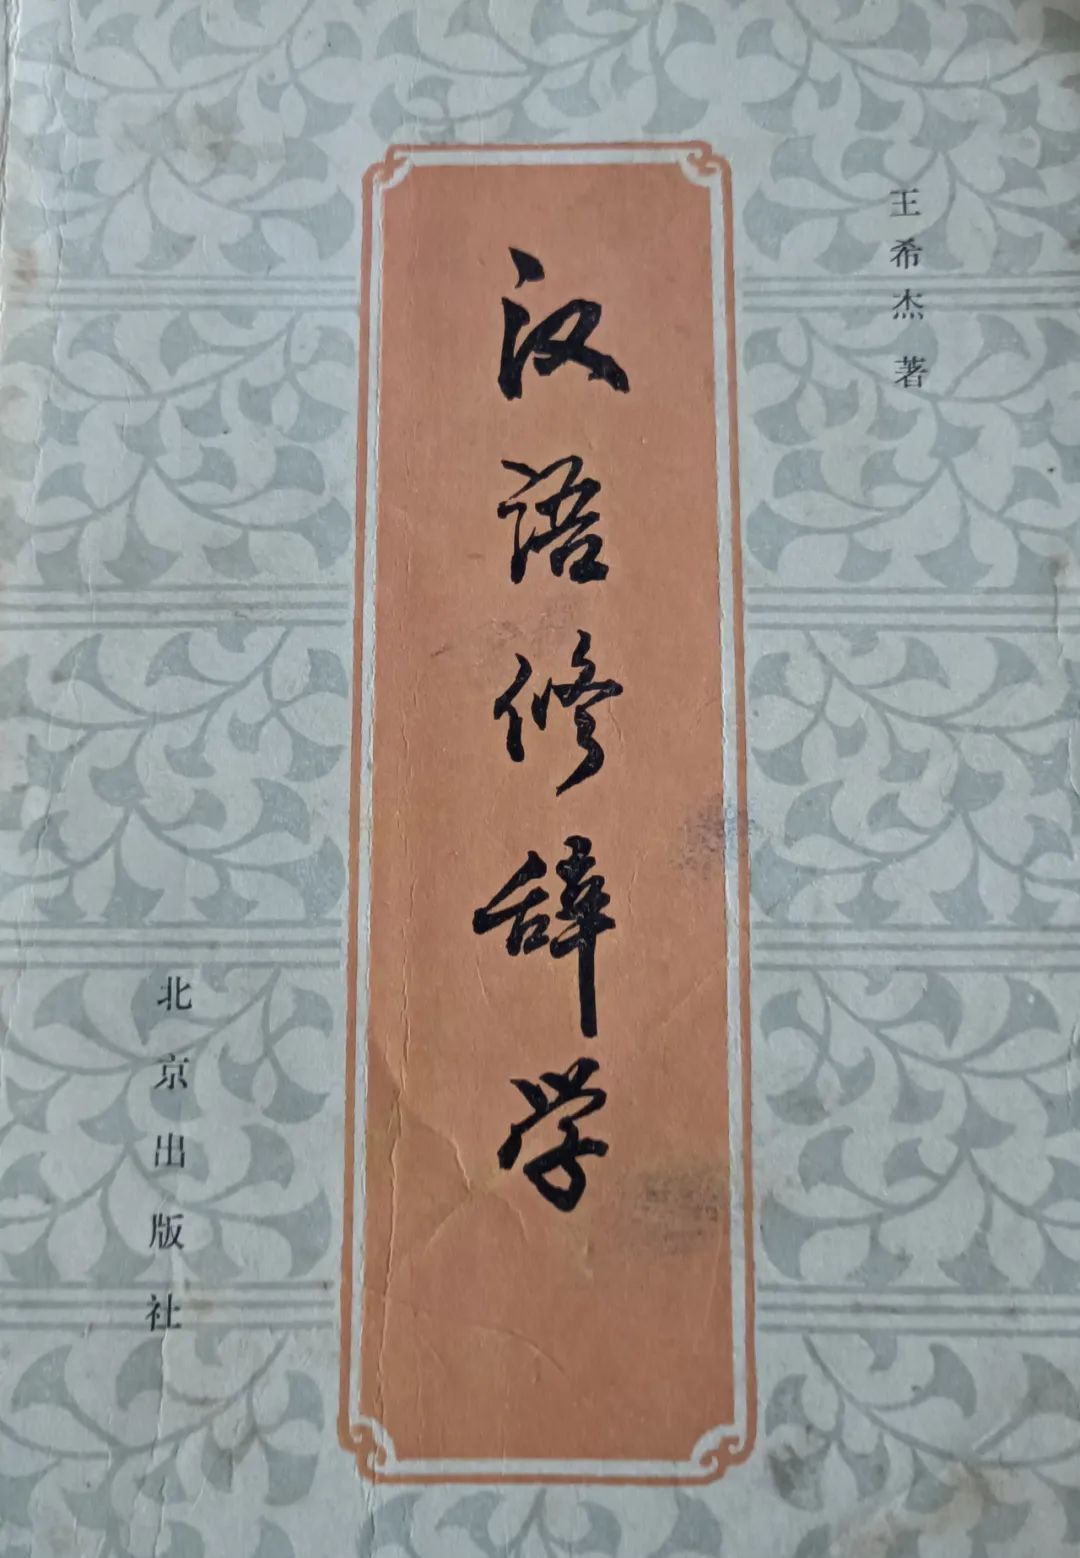 王希杰 著
汉语修辞学
北京出版社